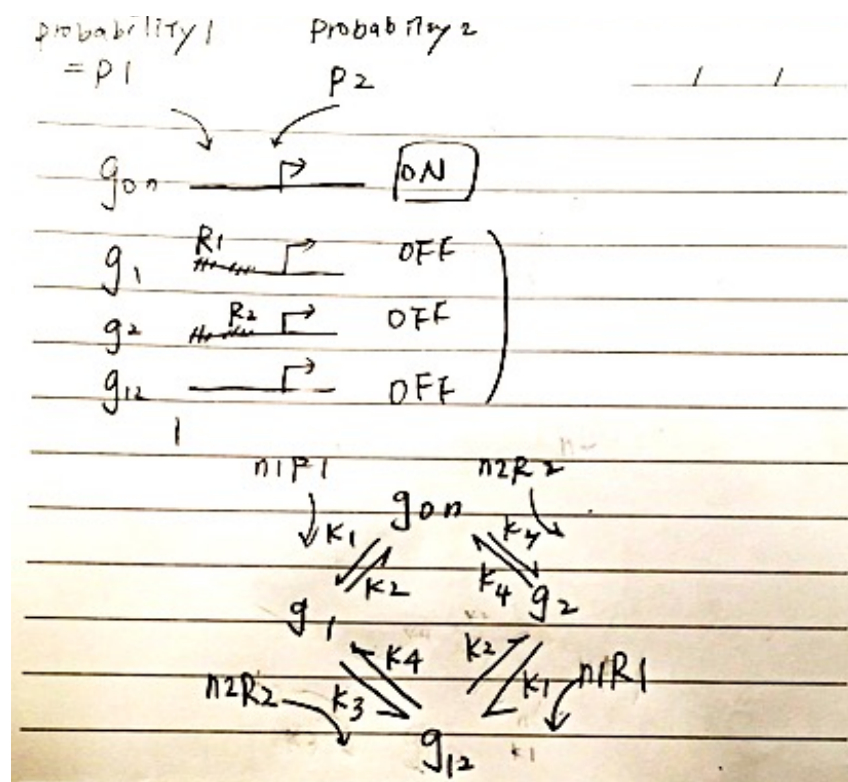 probability 1 probability 2
= P1 P2
gon ON
g1 R1 OFF
g2 R2 OFF
g12 OFF
1
n1P1 n2R2
gon
K1 K2 K4
g1 g2
K4 K2
n2R2 K3 K1 n1R1
g12